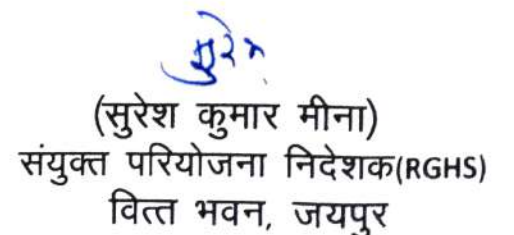 सुरेश
(सुरेश कुमार मीना)
संयुक्त परियोजना निदेशक(RGHS)
वित्त भवन, जयपुर